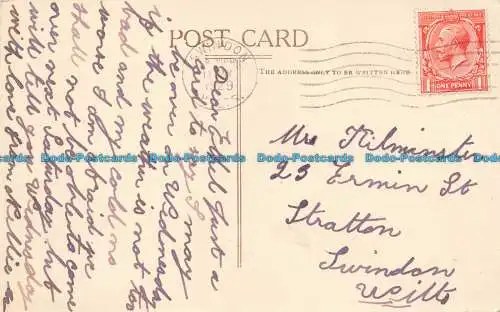 POST CARD
THE ADDRESS ONLY TO BE WRITTEN HERE
ONE PENNY
Dear Ethel Just a
card to say I may
be over Wednesday
if the weather is not too
bad and my cold no
worse I am afraid we
shall not be able to come
over next Saturday but
will tell you Wednesday
with love from Nellie
Mrs Kilminster
23 Ermin St
Stratton
Swindon
Wilts
Dodo-Postcards Dodo-Postcards Dodo-Postcards Dodo-Postcards